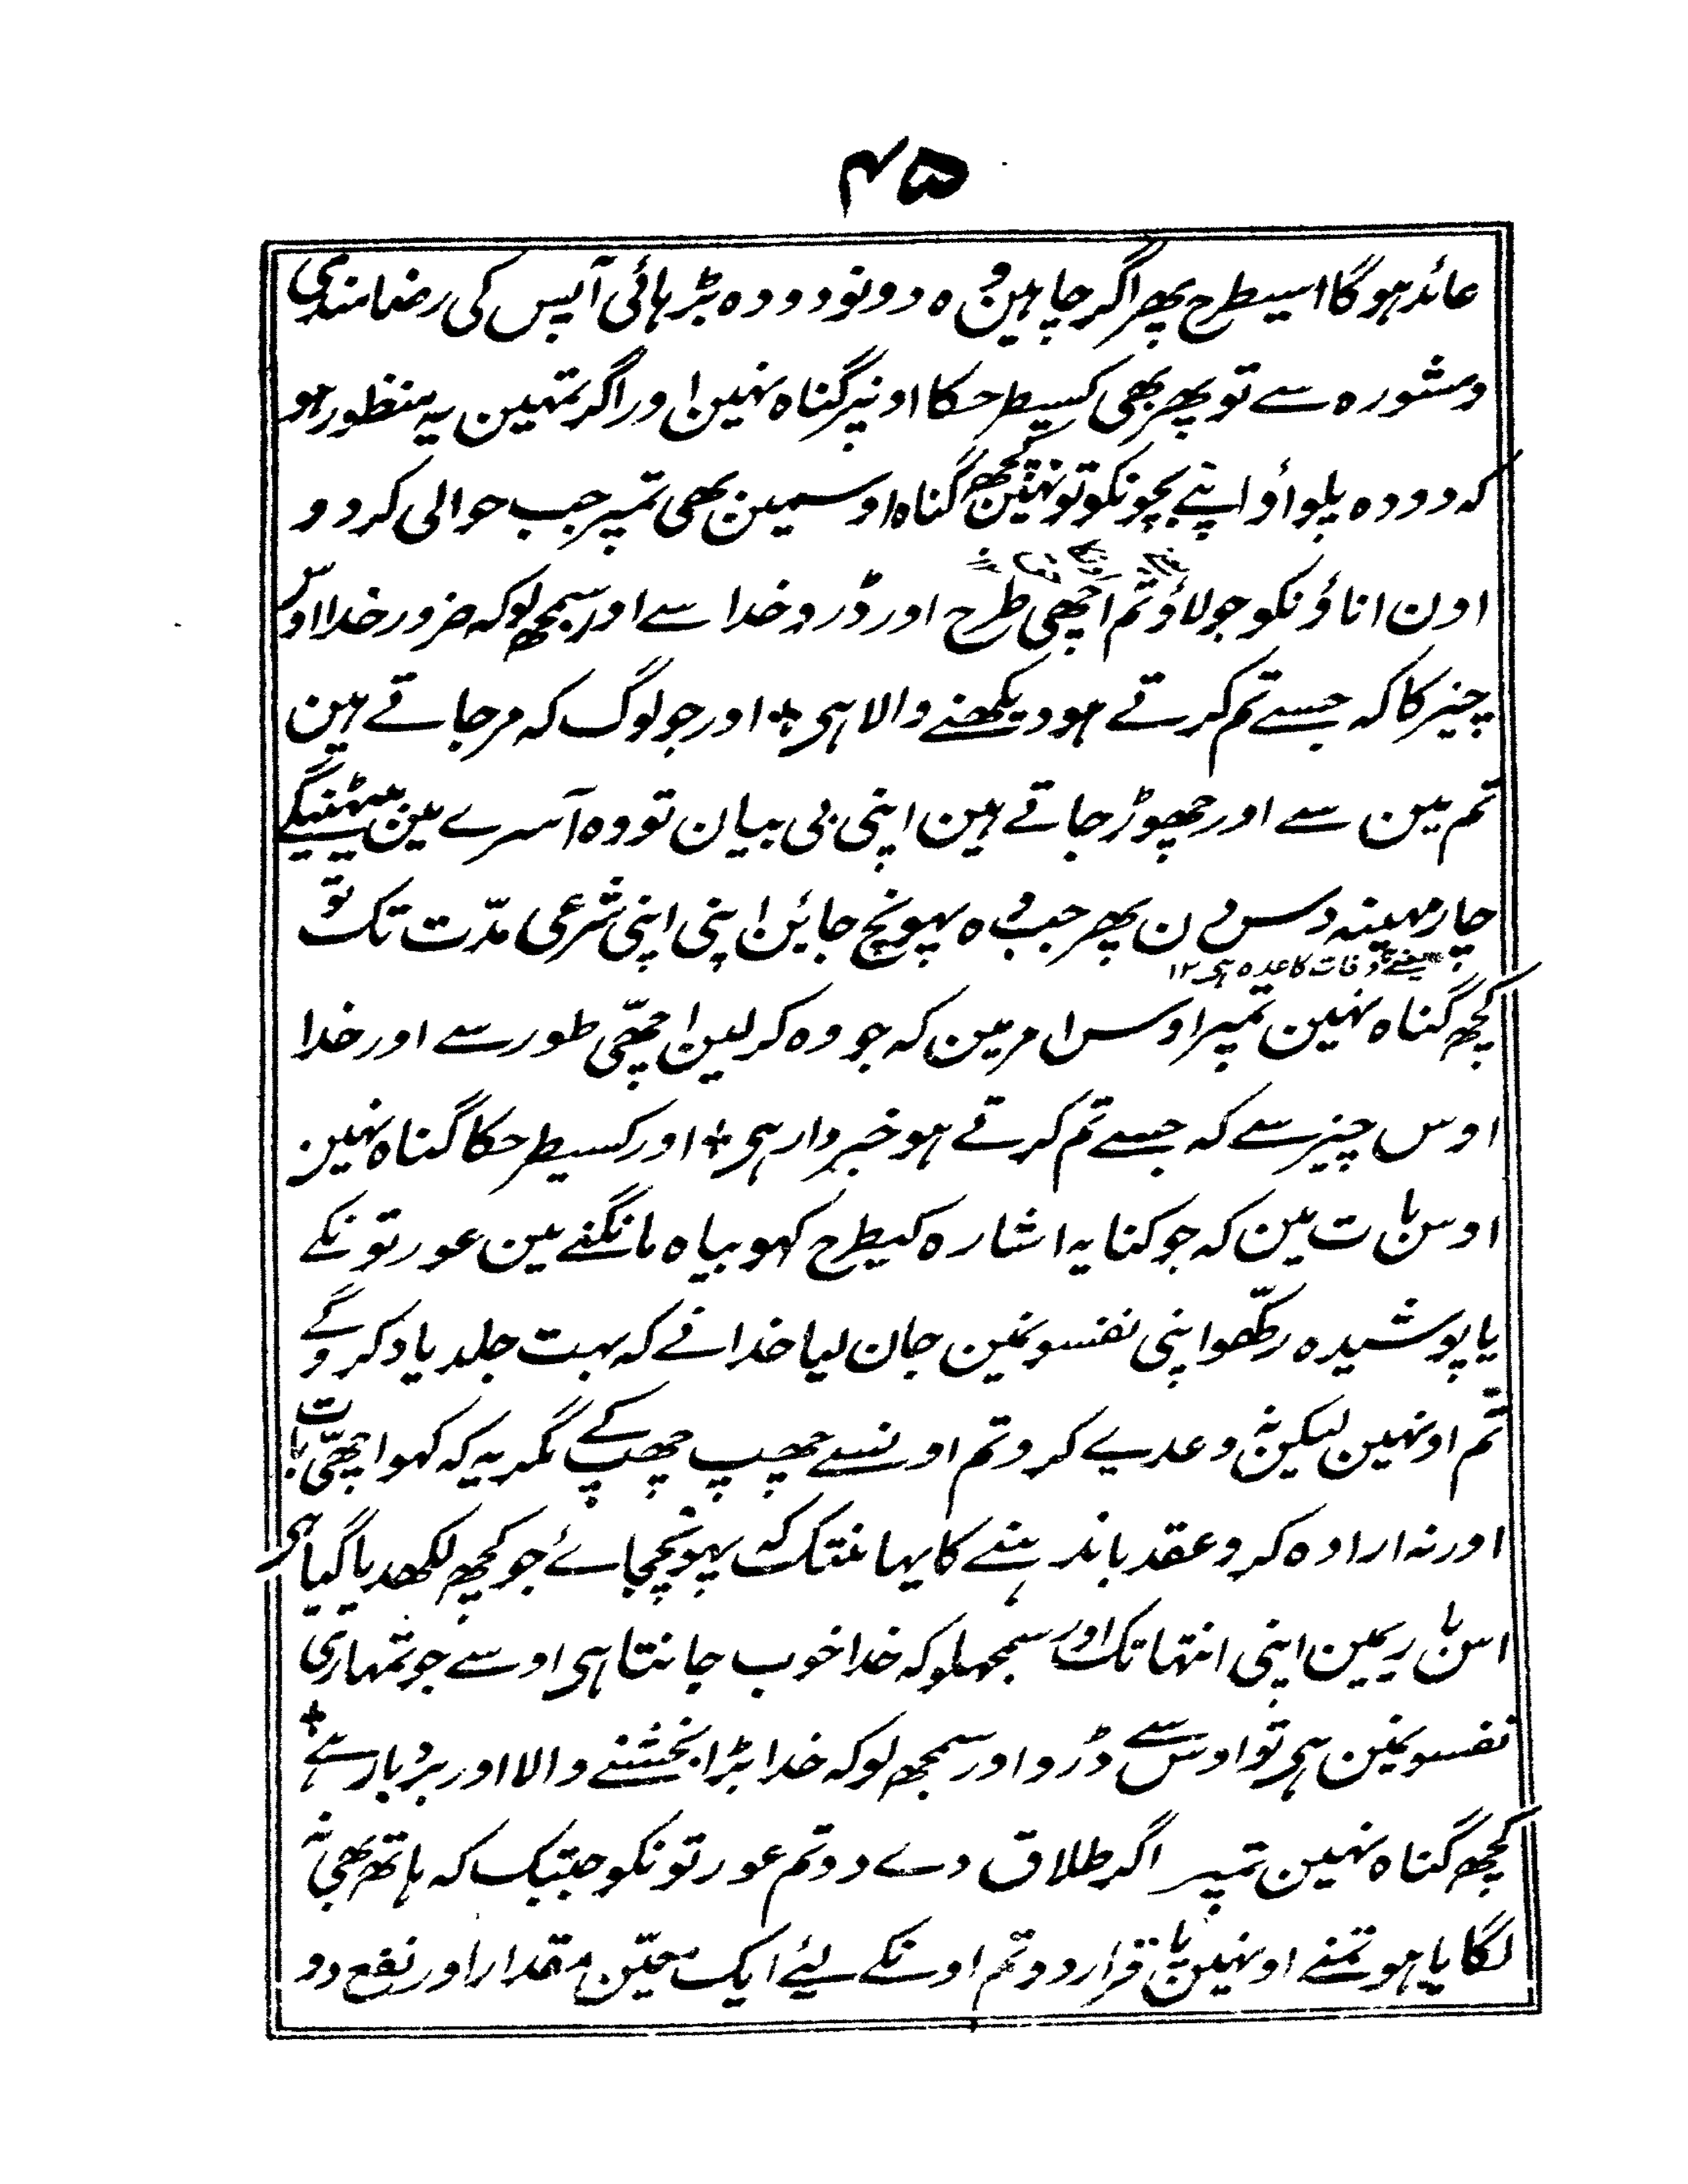 ۴۵
عائد ہوگا اسیطرح پھر اگر چاہین وہ دونو دودہ بڑہائی آپس کی رضامندی
ومشورہ سے تو پھر بھی کسیطرحکا اونپر گناہ نہین اور اگر تمہین یہ منظور ہو
کہ دودہ پلواؤ اپنے بچونکو تو نہین کچھ گناہ اوسمین بھی تمپر جب حوالی کردو
اون اناؤنکو جو لاؤ تم اچھی طرح اور ڈرو خدا سے اور سمجھ لو کہ ضرور خدا اوس
چیز کا کہ جسے تم کرتے ہو دیکھنے والا ہی + اور جو لوگ کہ مرجاتے ہین
تم مین سے اور چھوڑ جاتے ہین اپنی بی بیان تو وہ آسرے مین بیٹھینگے
چار مہینہ دس دن پھر جب وہ پہونچ جائین اپنی اپنی شرعی مدّت تک تو
یعنے وفات کا عدہ ہی ۱۲
کچھ گناہ نہین تمپر اوس امر مین کہ جو وہ کرلین اچھّی طور سے اور خدا
اوس چیز سے کہ جسے تم کرتے ہو خبردار ہی + اور کسیطرحکا گناہ نہین
اوس بات مین کہ جو کنایہ اشارہ کیطرح کہو بیاہ مانگنے مین عورتونکے
یا پوشیدہ رکھّو اپنی نفسونمین جان لیا خدا نے کہ بہت جلد یاد کروگے
تم اونہین لیکن نہ وعدے کرو تم اونسے چھپ چھپ کے مگر یہ کہ کہو اچھّی بات
اور نہ ارادہ کرو عقد باندہنے کا یہانتک کہ پہونچجائے جو کچھ لکھدیا گیا ہی
اس باریمین اپنی انتہا تک اور سمجھلو کہ خدا خوب جانتا ہی اوسے جو تمہاری
نفسونمین ہی تو اوس سے ڈرو اور سمجھ لو کہ خدا بڑا بخشنے والا اور بردبار ہے +
کچھ گناہ نہین تمپر اگر طلاق دے دو تم عورتونکو جبتک کہ ہاتھ بھی نہ
لگایا ہو تمنے اونہین یا قرار دو تم اونکے لیئے ایک معیّن مقدار اور نفع دو